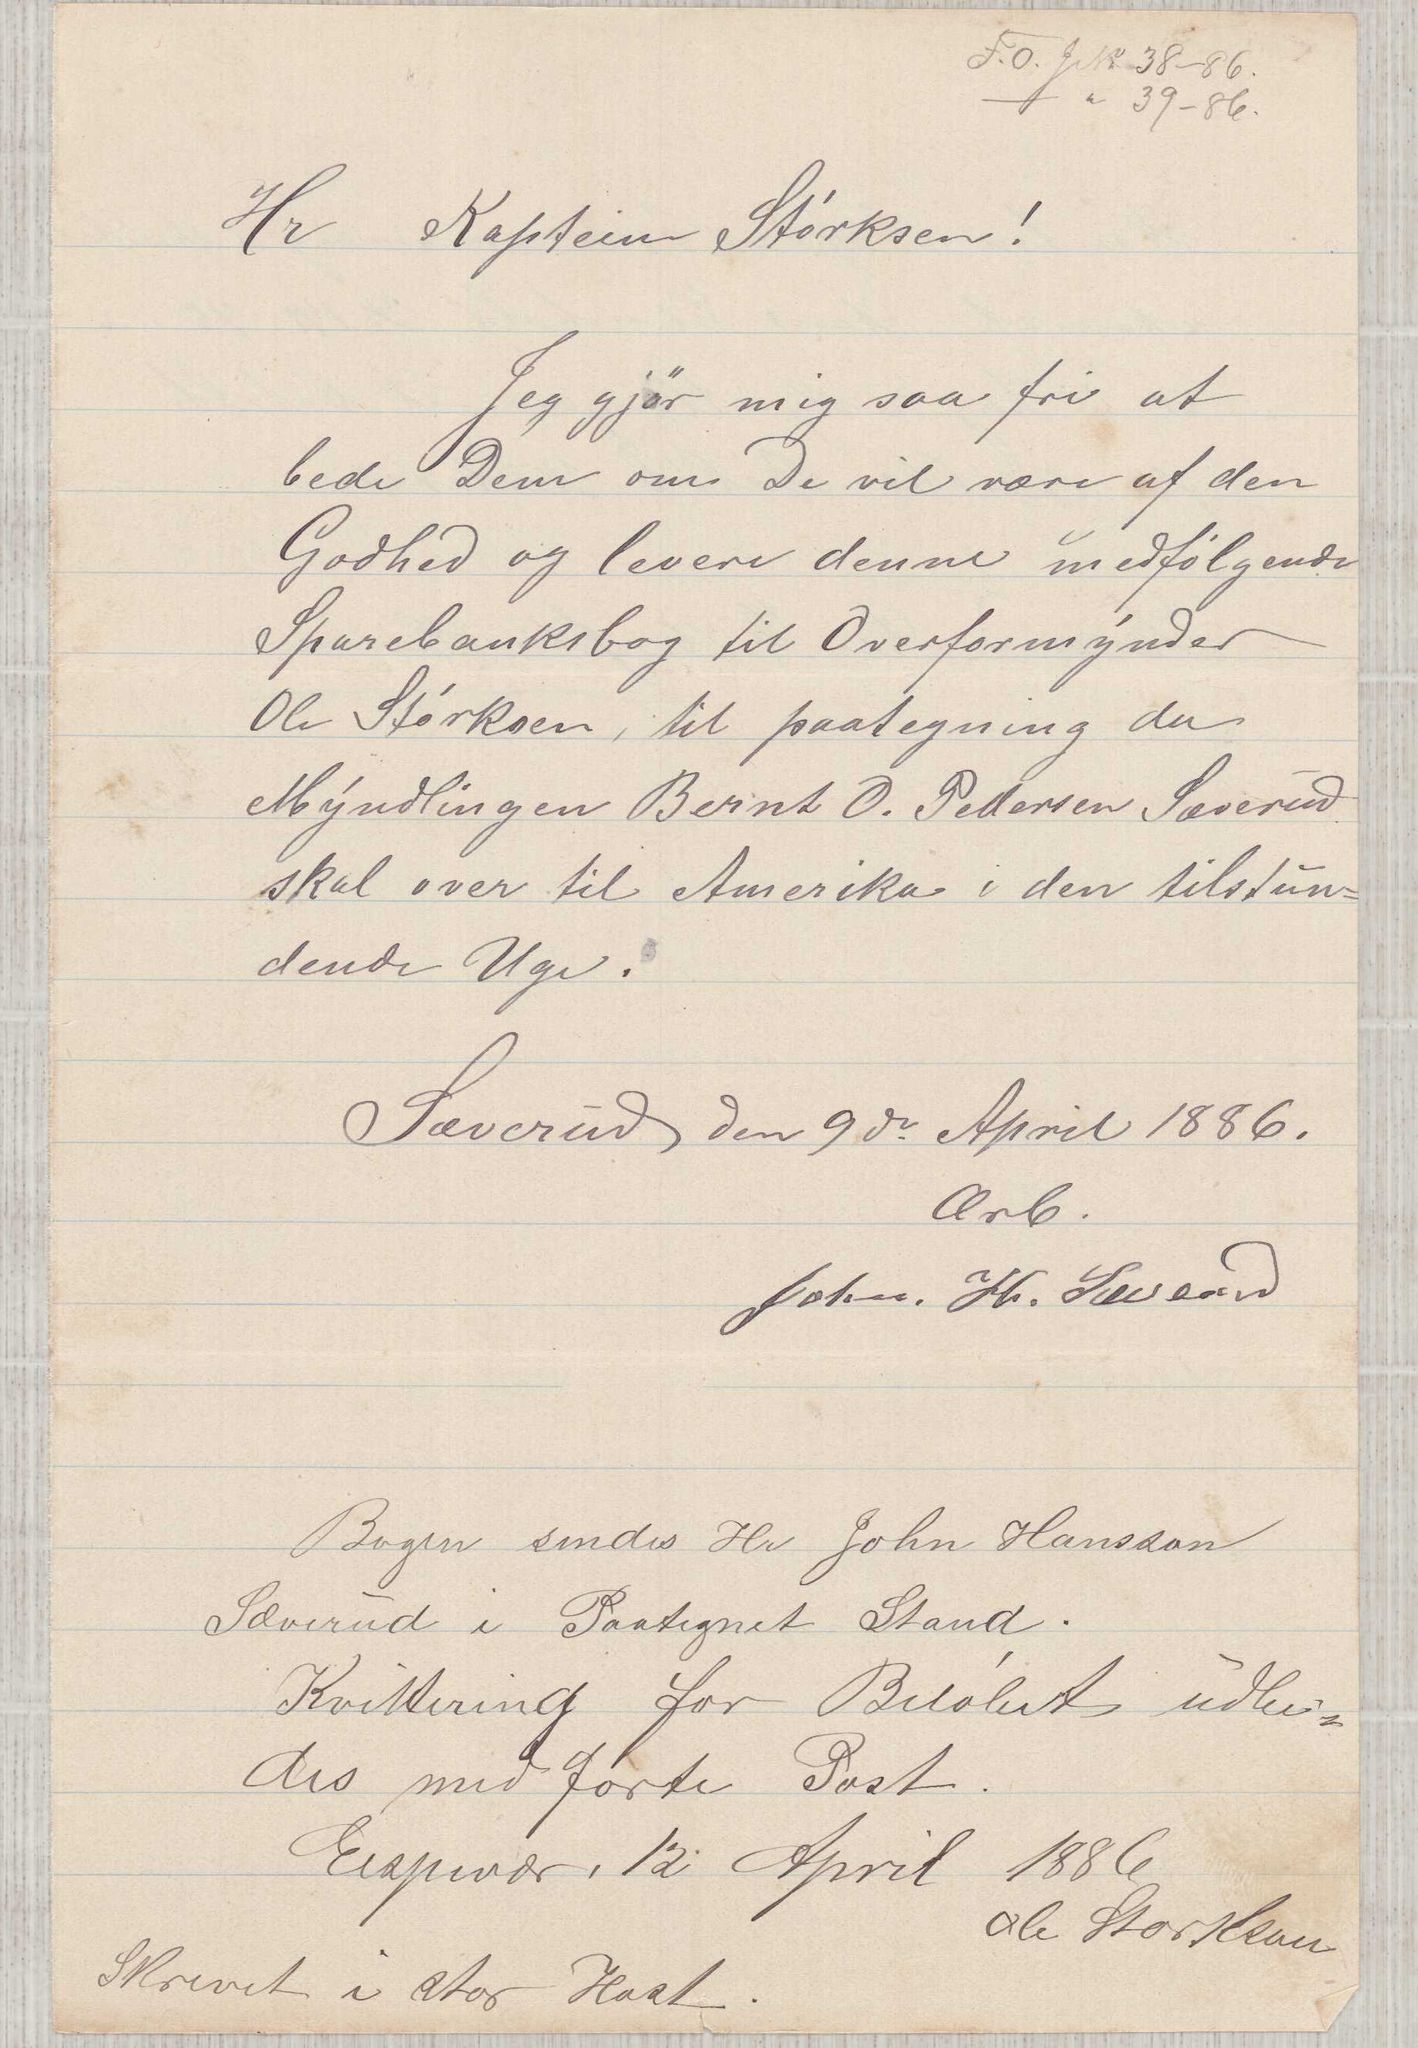 F.O. J.N. 38-86.
" 39-86.
Hr Kaptein Störksen!
Jeg gjör mig saa fri at
bede Dem om De vil være af den
Godhed og levere denne medfölgende
Sparebanksbog til Overformynder
Ole Störksen, til paategning da
Myndlingen Bernt O. Pedersen Sæverud
skal over til Amerika i den tilstun=
dende Uge.
Sæverud den 9de April 1886.
Ærb.
John. H. Sæverud
Bogen sendes Hr John Hansson
Sæverud i Paategnet Stand.
Kvittering for Belöbet udbe=
des med förte Post.
Espevær, 12 April 1886
Ole Storkson
Skrevet i stor Hast.